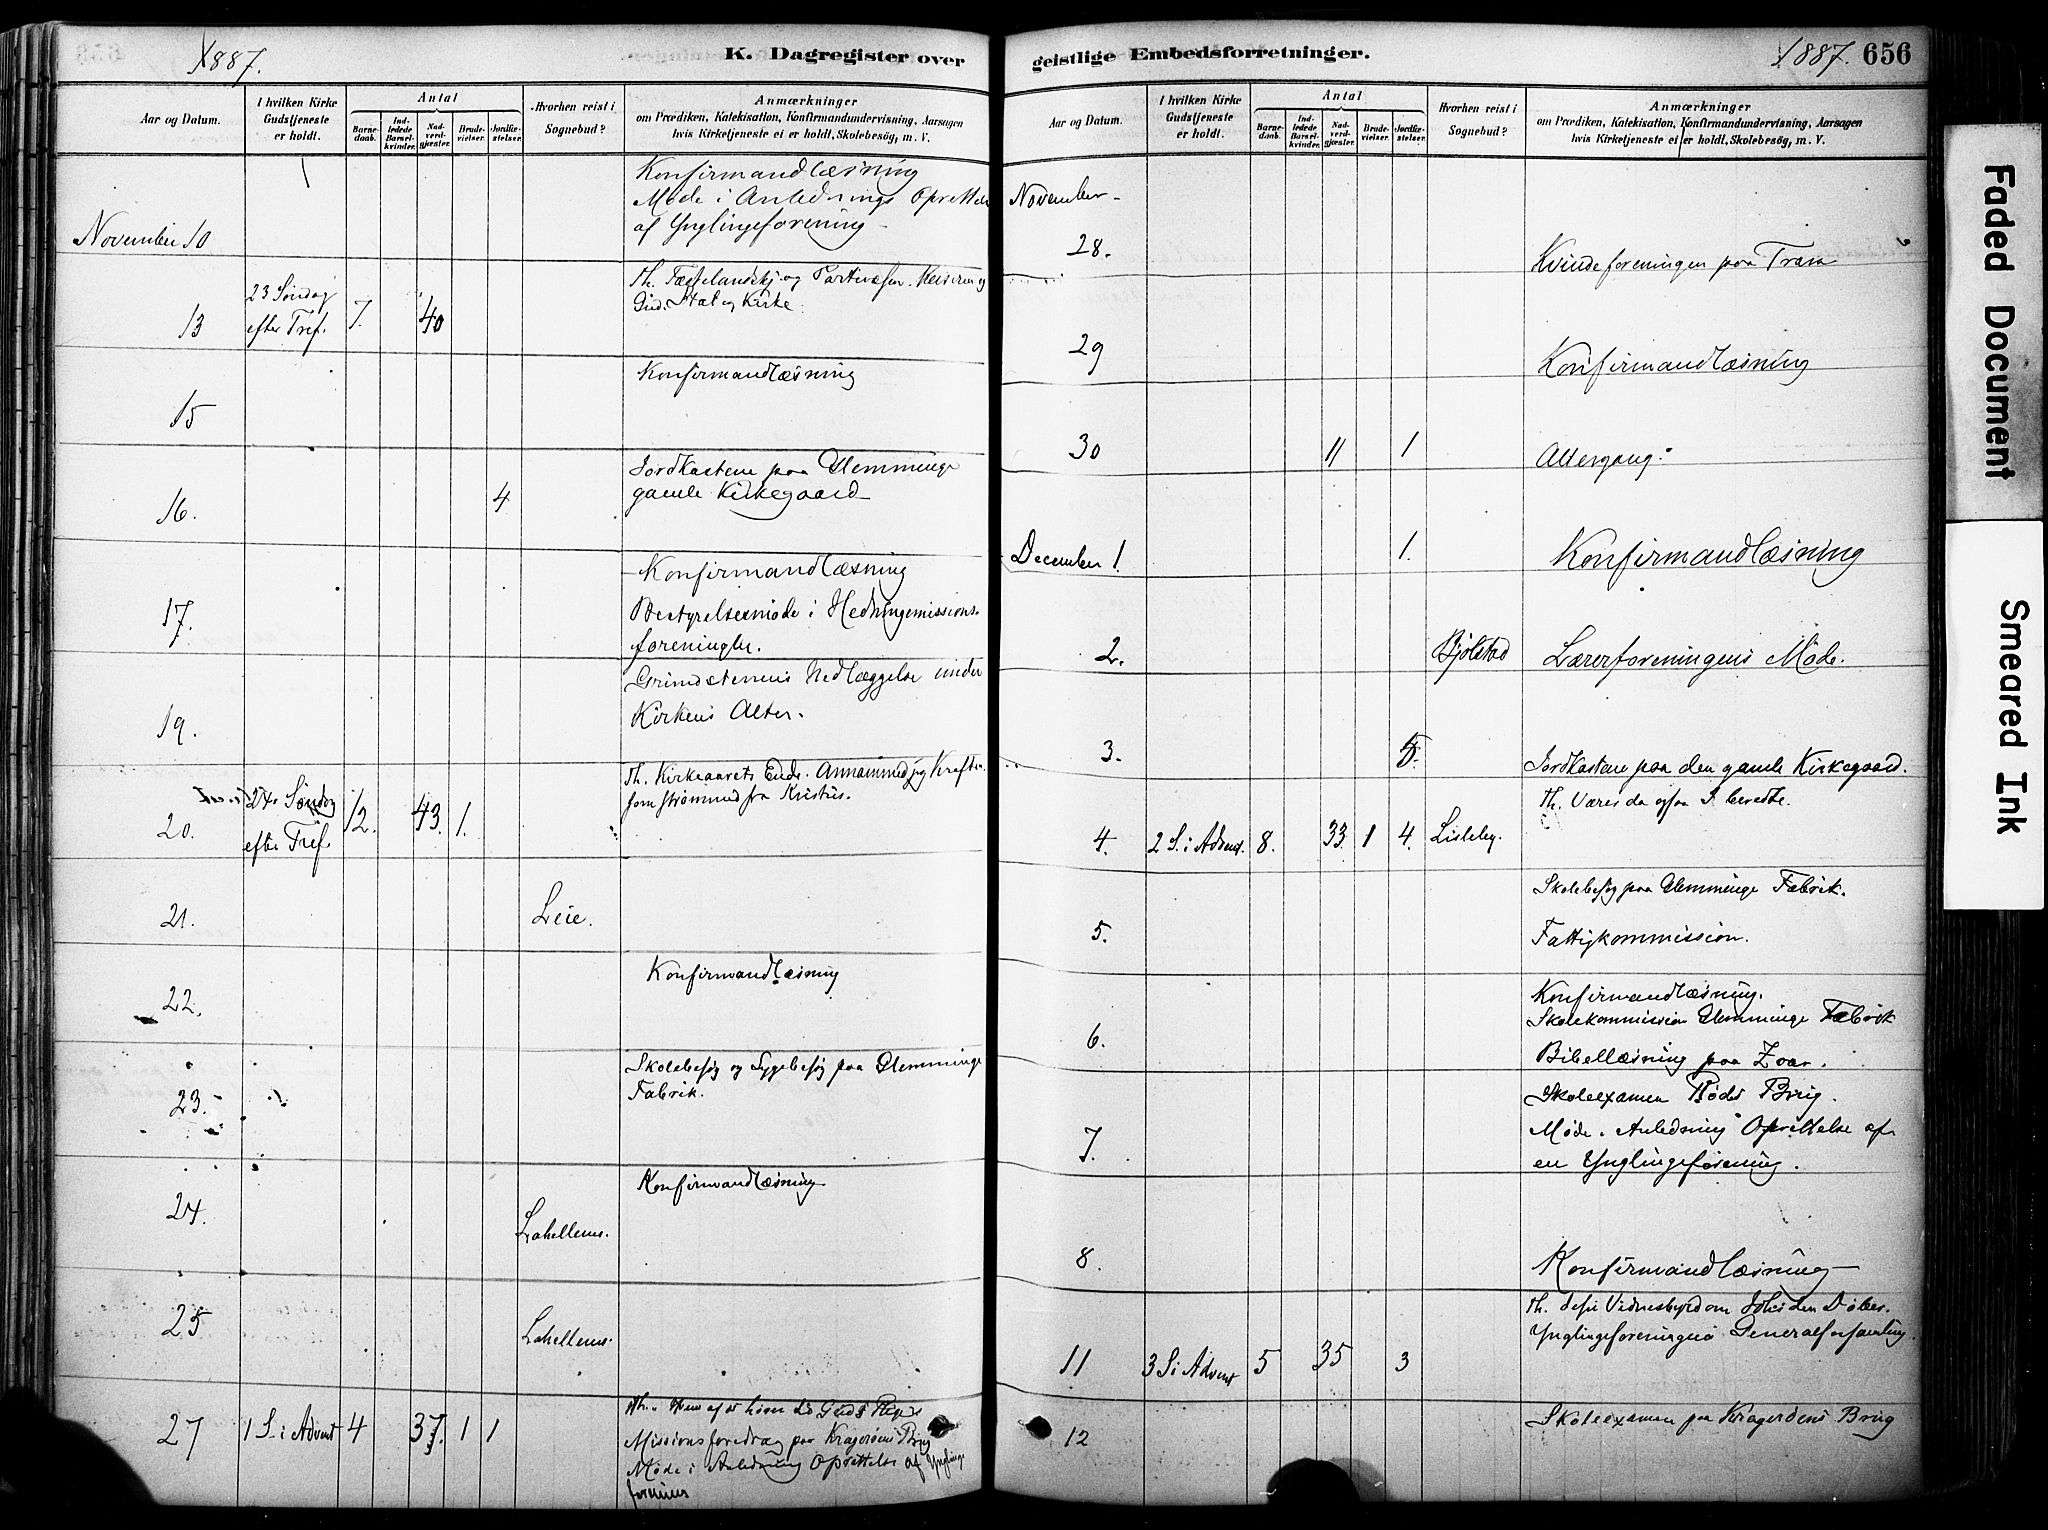 1887.
K. Dagregister over
Aar og Datum.
I hvilken Kirke Gudstjeneste er holdt.
Antal
Barnedaab.
Indledede Barselkvinder.
Nadverdgjæster.
Brudevielser.
Jordfæstelser.
Hvorhen reist i Sognebud?
Anmærkninger
om Prædiken, Katekisation, Konfirmandundervisning, Aarsagen
hvis Kirketjeneste ei er holdt, Skolebesög, m. V.
Konfirmandlæsning
Møde i Anlednings Oprettelse
November 10 af Ynglingeforening
23 Søndag
13 efter Tref. 7. 40
Stat og Kirke
15 Konfirmandlæsning
Jordkastene paa Glemminge
16. 4 gamle Kirkegaard
Konfirmandlæsning
17. Bestyrelsesmøde i Hedningemissions-
foreningen.
Grundstenens Nedlæggelse under
19. Kirkens Alter.
Th. Kirkeaarets Ende. Kraften
24 Søndag som strømmed fra Kristus.
20. efter Tref. 12. 43. 1.
21. Leie.
22. Konfirmandlæsning
Skolebesøg og Sygebesøg paa Glemminge
23. Fabrik.
24. Lahellens. Konfirmandlæsning
25 Lahellens.
27 1 S. i Advent 4 37. 1 1
Missionsforedrag paa Kragerøens Brug
Møde i Anledning Oprettelse af Ynglinge
forening
geistlige Embedsforretninger.
1887. 656
Aar og Datum.
I hvilken Kirke Gudstjeneste er holdt.
Antal
Barnedaab.
Indledede Barselkvinder.
Nadverdgjæster.
Brudevielser.
Jordfæstelser.
Hvorhen reist i Sognebud?
Anmærkninger
om Prædiken, Katekisation, Konfirmandundervisning, Aarsagen
hvis Kirketjeneste ei er holdt, Skolebesög, m. V.
November
28. Kvindeforeningen paa Trara
29 Konfirmandlæsning
30 11 1 Altergang.
December 1. 1. Konfirmandlæsning
2. Bjölstad Lærerforeningens Møde.
3. 5. Jordkastene paa den gamle Kirkegaard.
Th. Værer da ogsaa I beredte.
4. 2 S. i Advent. 8. 33 1 4. Lisleby.
Skolebesøg paa Glemminge Fabrik.
5. Fattigkommission.
Konfirmandlæsning.
Skolekommission Glemminge Fabrik
6. Bibellæsning paa Zoar.
Skoleexamen Røds Brug.
7. Møde i Anledning Oprettelse af
en Ynglingeforening.
8. Konfirmandlæsning
Th. Vidnesbyrd om Johs den Døber.
Ynglingeforeningens Generalforsamling.
11 3 S i Advent 5 35 3
12 Skoleexamen paa Kragerøens Brug
Faded Document
Smeared Ink